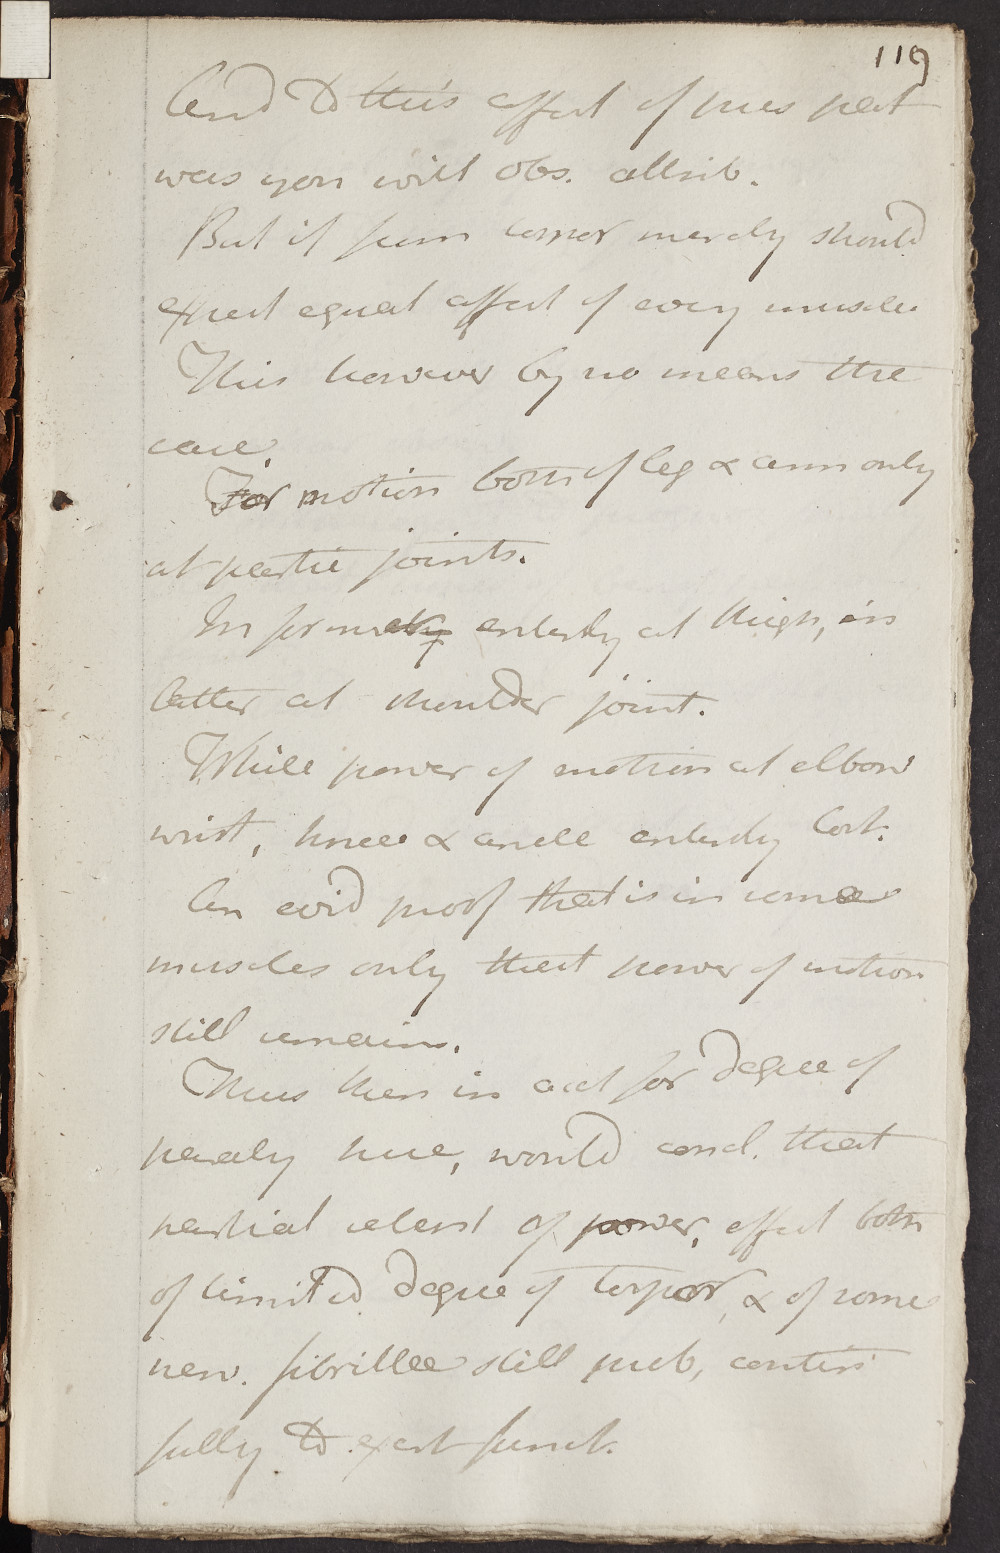 119
And to this effect of pres
was you will obs. attrib.
But if from former merely should
expect equal effect of every muscle
This however by no means the
case.
For motion both of leg & arm only
at partic joints.
In former entirely at thigh, in
latter at shoulder joint.
While power of motion at elbow
wrist, knee & ancle entirely lost.
An evid proof that is in some
muscles only that power of motion
still remains.
Thus then in acct for degree of
here, would concl. that
partial of power, effect both
of limited degree of torpor, & of some
nerv. fibrillae still contin
fully to exert funct.